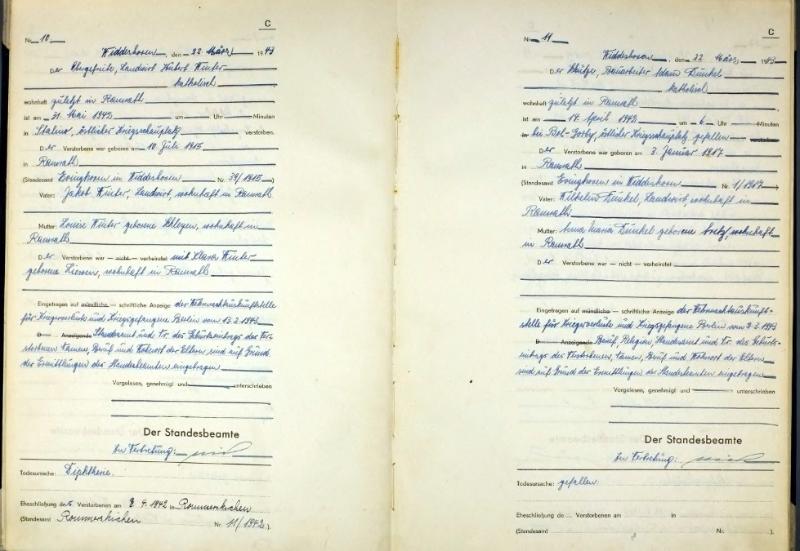 C
Nr. 10
Widdeshoven, den 22. März 1943
Der Obergefreite, Landwirt Hubert Winter
katholisch
wohnhaft zuletzt in Ramrath
ist am 31. Mai 1942 um Uhr Minuten
in Stalino, östlicher Kriegsschauplatz verstorben.
Der Verstorbene war geboren am 18. Juli 1915
in Ramrath
(Standesamt Evinghoven in Widdeshoven Nr. 39/1915)
Vater: Jakob Winter, Landwirt, wohnhaft in Ramrath
Mutter: Louise Winter geborene wohnhaft in
Ramrath
Der Verstorbene war — nicht — verheiratet mit Klara Winter
geborene wohnhaft in Ramrath
Eingetragen auf mündliche — schriftliche Anzeige der Wehrmachtauskunftstelle
für Kriegerverluste und Kriegsgefangene Berlin vom 13.2.1943
D Anzeigende Standesamt und Nr. des Geburtseintrags des Ver-
storbenen, Namen, Beruf und Wohnort der Eltern sind auf Grund
der Ermittlungen des Standesbeamten eingetragen
Vorgelesen, genehmigt und unterschrieben
Der Standesbeamte
In Vertretung:
Todesursache: Diphtherie.
Eheschließung des Verstorbenen am 8.4.1942 in Rommerskirchen
(Standesamt Rommerskirchen Nr. 11/1942.)
C
Nr. 11
Widdeshoven, den 22. März 1943
Der Schütze, Bauarbeiter Adam Dünkel
katholisch
wohnhaft zuletzt in Ramrath
ist am 14. April 1942 um 6 Uhr Minuten
in bei östlicher Kriegsschauplatz gefallen verstorben.
Der Verstorbene war geboren am 3. Januar 1917
in Ramrath
(Standesamt Evinghoven in Widdeshoven Nr. 1/1917)
Vater: Wilhelm Dünkel, Landwirt, wohnhaft in
Ramrath
Mutter: Anna Maria Dünkel geborene wohnhaft
in Ramrath
Der Verstorbene war — nicht — verheiratet
Eingetragen auf mündliche — schriftliche Anzeige der Wehrmachtauskunft-
stelle für Kriegerverluste und Kriegsgefangene Berlin vom 9.2.1943
D Anzeigende Beruf, Religion, Standesamt und Nr. des Geburts-
eintrags des Verstorbenen, Namen, Beruf und Wohnort der Eltern
sind auf Grund der Ermittlungen des Standesbeamten eingetragen
Vorgelesen, genehmigt und unterschrieben
Der Standesbeamte
In Vertretung:
Todesursache: gefallen
Eheschließung de Verstorbenen am in
(Standesamt Nr. ).